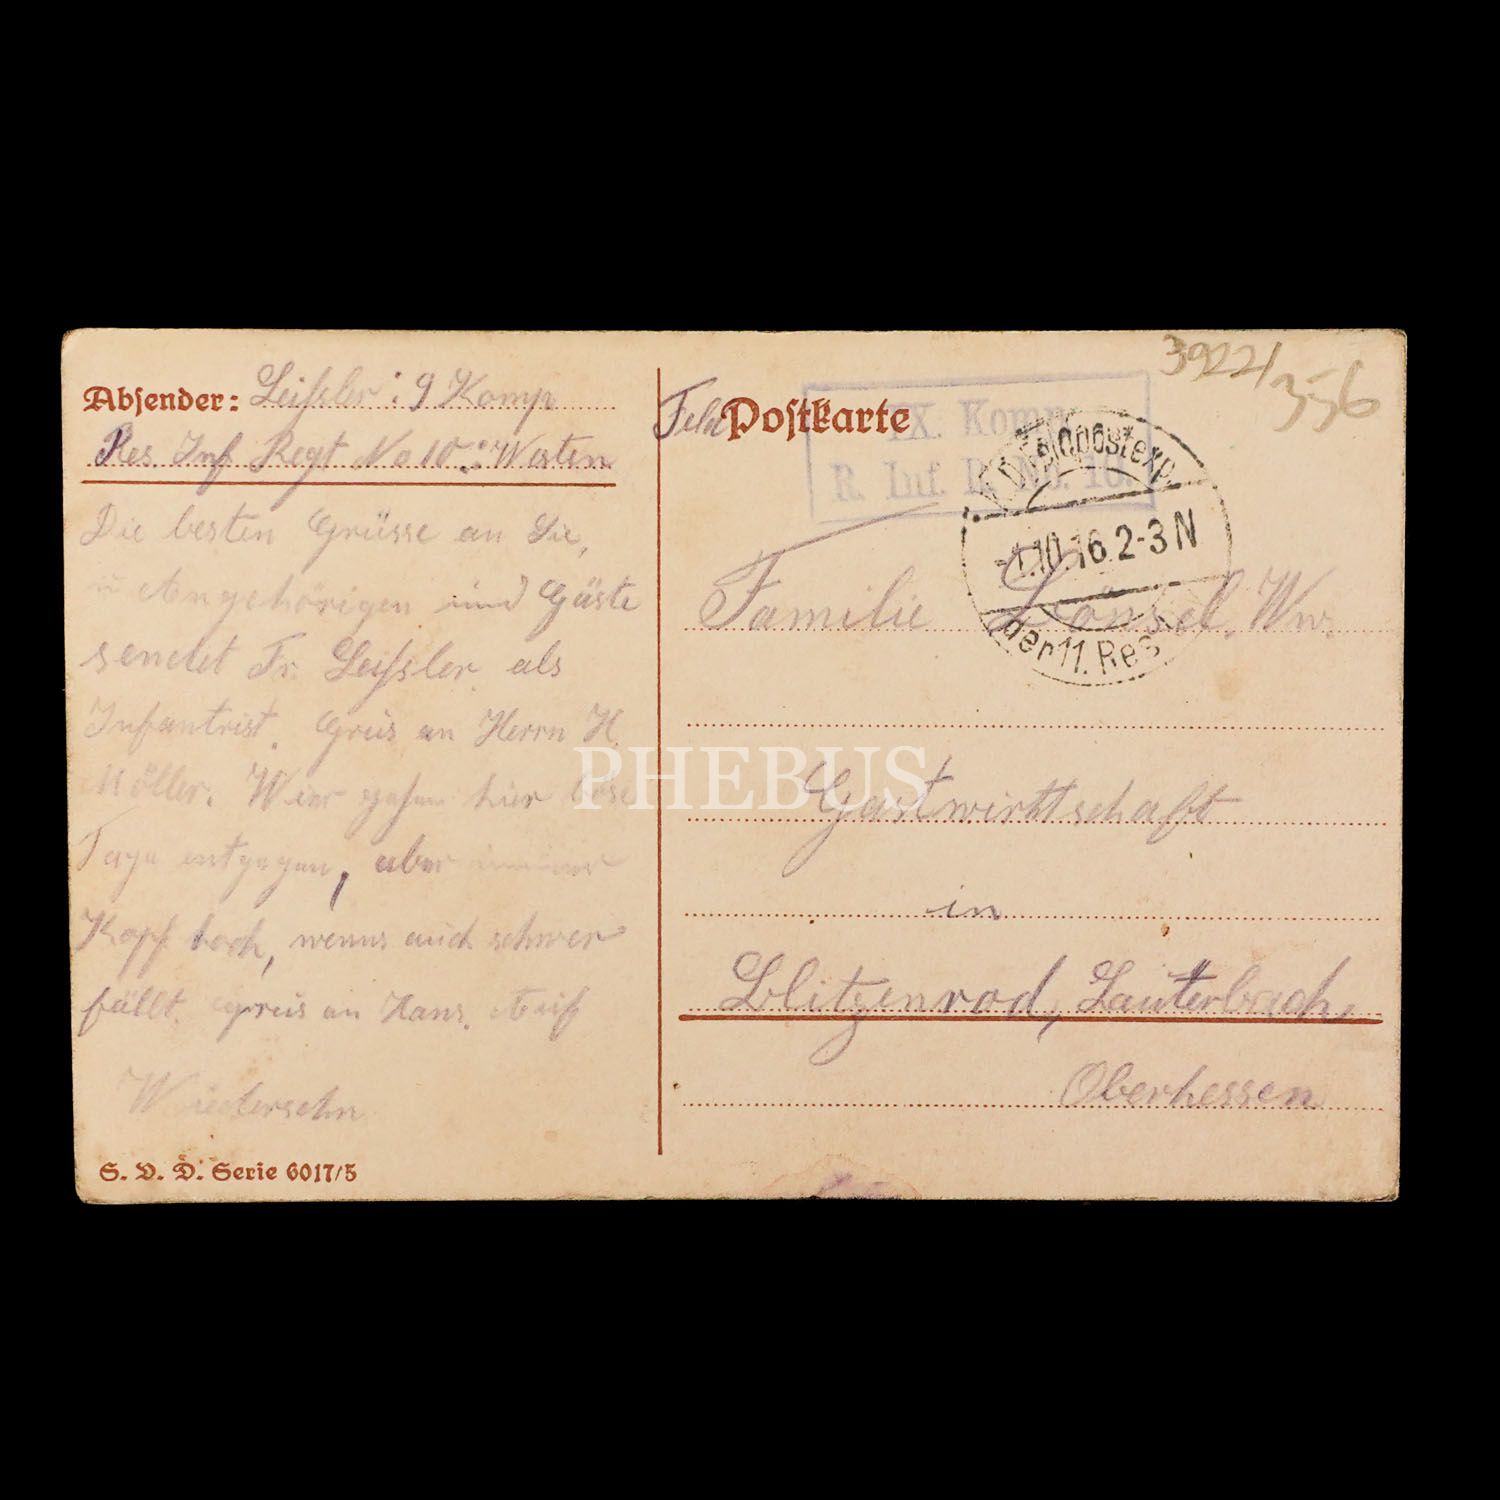 Absender: Leissler: 9 Komp
Res. Inf. Regt No 10: Westen
Die besten Grüsse an Sie,
u Angehörigen und Gäste
sendet Fr. Leissler als
Infantrist. Grus an Herrn H
Möller. Wier gehen hier böse
Tage entgegen, aber immer
Kopf hoch, wenns auch schwer
fällt. Grus an Hans. Auf
Wiedersehn
S. V. D. Serie 6017/5
39221
356
Feld Postkarte
IX. Komp.
R. Inf. R. No. 10.
Feldpostexp.
-1.10.16. 2-3 N
der 11. Res.
Familie Ww.
Gastwirtschaft
in
Blitzenrod, Lauterbach,
Oberhessen
PHEBUS